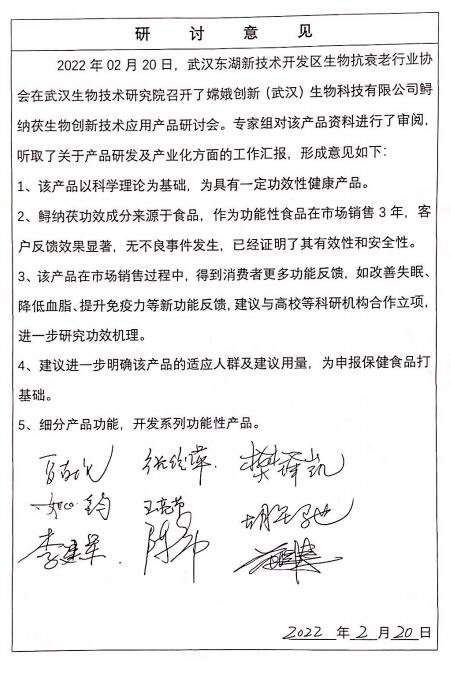 研 讨 意 见
2022 年 02 月 20 日，武汉东湖新技术开发区生物抗衰老行业协
会在武汉生物技术研究院召开了嫦娥创新（武汉）生物科技有限公司鲟
纳茯生物创新技术应用产品研讨会。专家组对该产品资料进行了审阅，
听取了关于产品研发及产业化方面的工作汇报，形成意见如下：
1、该产品以科学理论为基础，为具有一定功效性健康产品。
2、鲟纳茯功效成分来源于食品，作为功能性食品在市场销售 3 年，客
户反馈效果显著，无不良事件发生，已经证明了其有效性和安全性。
3、该产品在市场销售过程中，得到消费者更多功能反馈，如改善失眠、
降低血脂、提升免疫力等新功能反馈，建议与高校等科研机构合作立项，
进一步研究功效机理。
4、建议进一步明确该产品的适应人群及建议用量，为申报保健食品打
基础。
5、细分产品功能，开发系列功能性产品。
2022 年 2 月 20 日